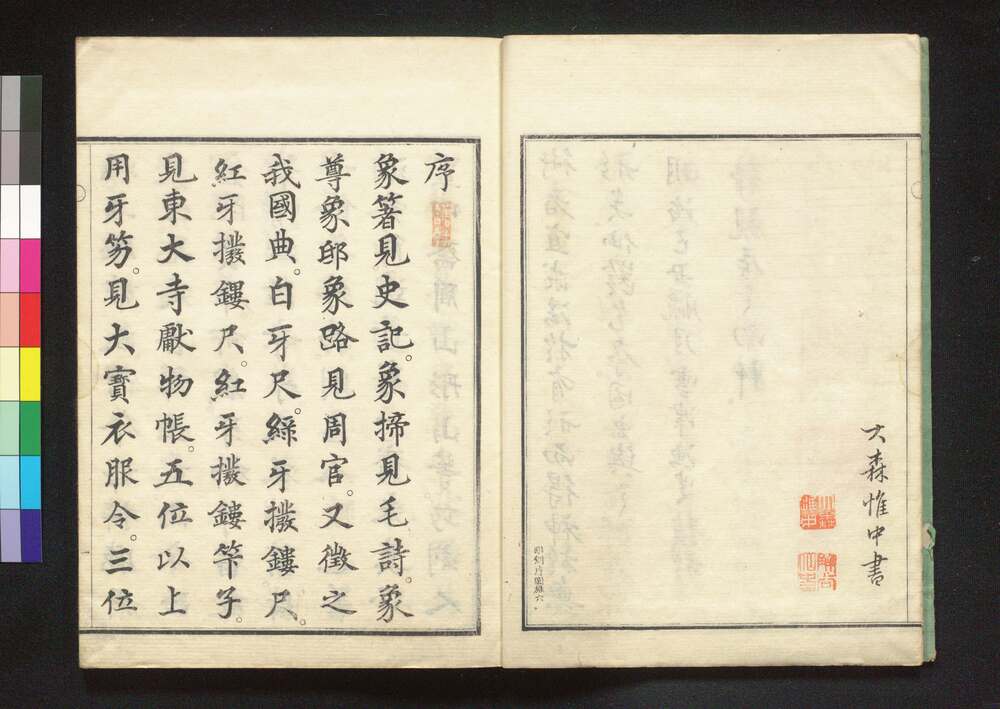 大森惟中書
序
象箸見史記。象揥見毛詩。象
尊象邸象路見周官。又徵之
我國典。白牙尺。綠牙撥鏤尺。
紅牙撥鏤尺。紅牙撥鏤笇子。
見東大寺獻物帳。五位以上
用牙笏。見大寶衣服令。三位